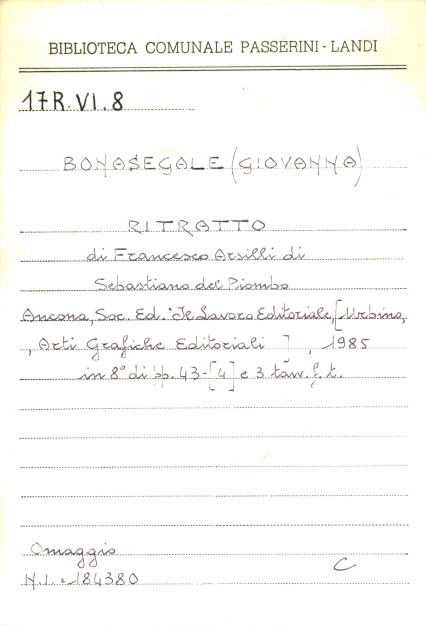 BIBLIOTECA COMUNALE PASSERINI - LANDI
17R.VI.8
BONASEGALE (GIOVANNA)
RITRATTO
di Francesco Arsilli di
Sebastiano del Piombo
Ancona, Soc. Ed. "Il Lavoro Editoriale, [Urbino,
, Arti Grafiche Editoriali ] , 1985
in 8° di pp. 43-[4] e 3 tav. f. t.
Omaggio
C
N.I. = 184380